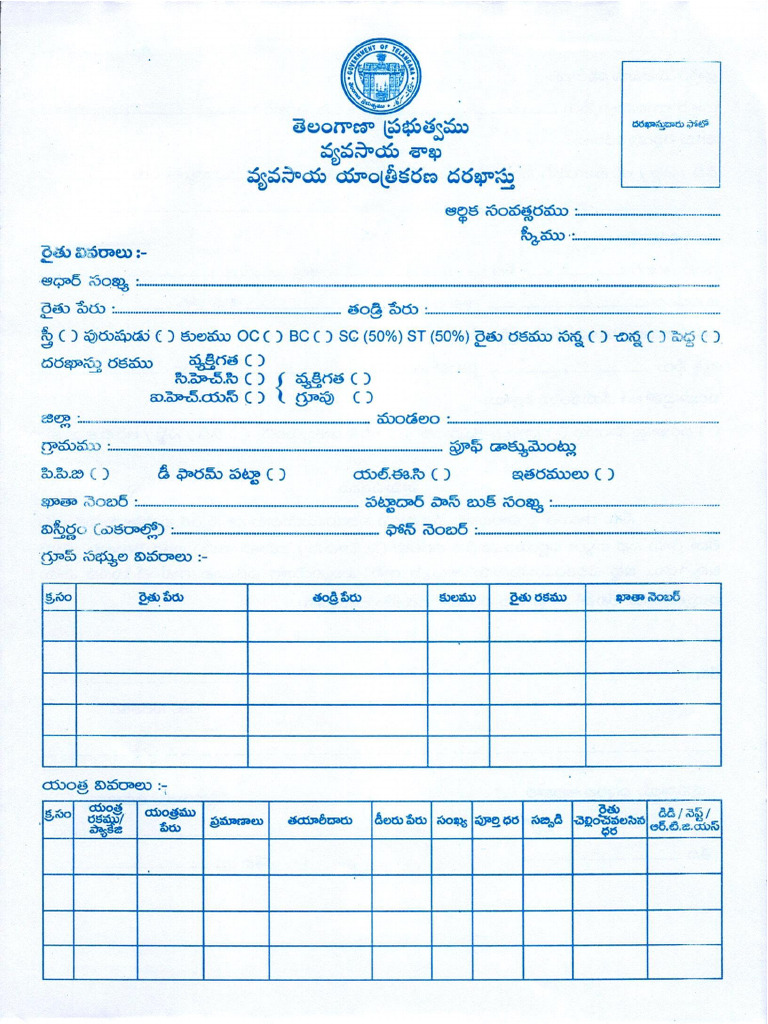 GOVERNMENT OF TELANGANA
తెలంగాణా ప్రభుత్వము
వ్యవసాయ శాఖ
వ్యవసాయ యాంత్రీకరణ దరఖాస్తు
దరఖాస్తుదారు ఫోటో
ఆర్థిక సంవత్సరము :
స్కీము :
రైతు వివరాలు :-
ఆధార్ సంఖ్య :
రైతు పేరు : తండ్రి పేరు :
స్త్రీ ( ) పురుషుడు ( ) కులము OC ( ) BC ( ) SC (50%) ST (50%) రైతు రకము సన్న ( ) చిన్న ( ) పెద్ద ( )
దరఖాస్తు రకము వ్యక్తిగత ( )
సి.హెచ్.సి ( ) { వ్యక్తిగత ( )
ఐ.హెచ్.యస్ ( ) గ్రూపు ( )
జిల్లా : మండలం :
గ్రామము : ప్రూఫ్ డాక్యుమెంట్లు
పి.పి.బి ( ) డీ ఫారమ్ పట్టా ( ) యల్.ఈ.సి ( ) ఇతరములు ( )
ఖాతా నెంబర్ : పట్టాదార్ పాస్ బుక్ సంఖ్య :
విస్తీర్ణం (ఎకరాల్లో) : ఫోన్ నెంబర్ :
గ్రూప్ సభ్యుల వివరాలు :-
క్ర.సం రైతు పేరు తండ్రి పేరు కులము రైతు రకము ఖాతా నెంబర్
యంత్ర వివరాలు :-
క్ర.సం యంత్ర రకము/ ప్యాకేజి యంత్రము పేరు ప్రమాణాలు తయారీదారు డీలరు పేరు సంఖ్య పూర్తి ధర సబ్సిడి రైతు చెల్లించవలసిన ధర డిడి / నెఫ్ట్ / ఆర్.టి.జి.యస్